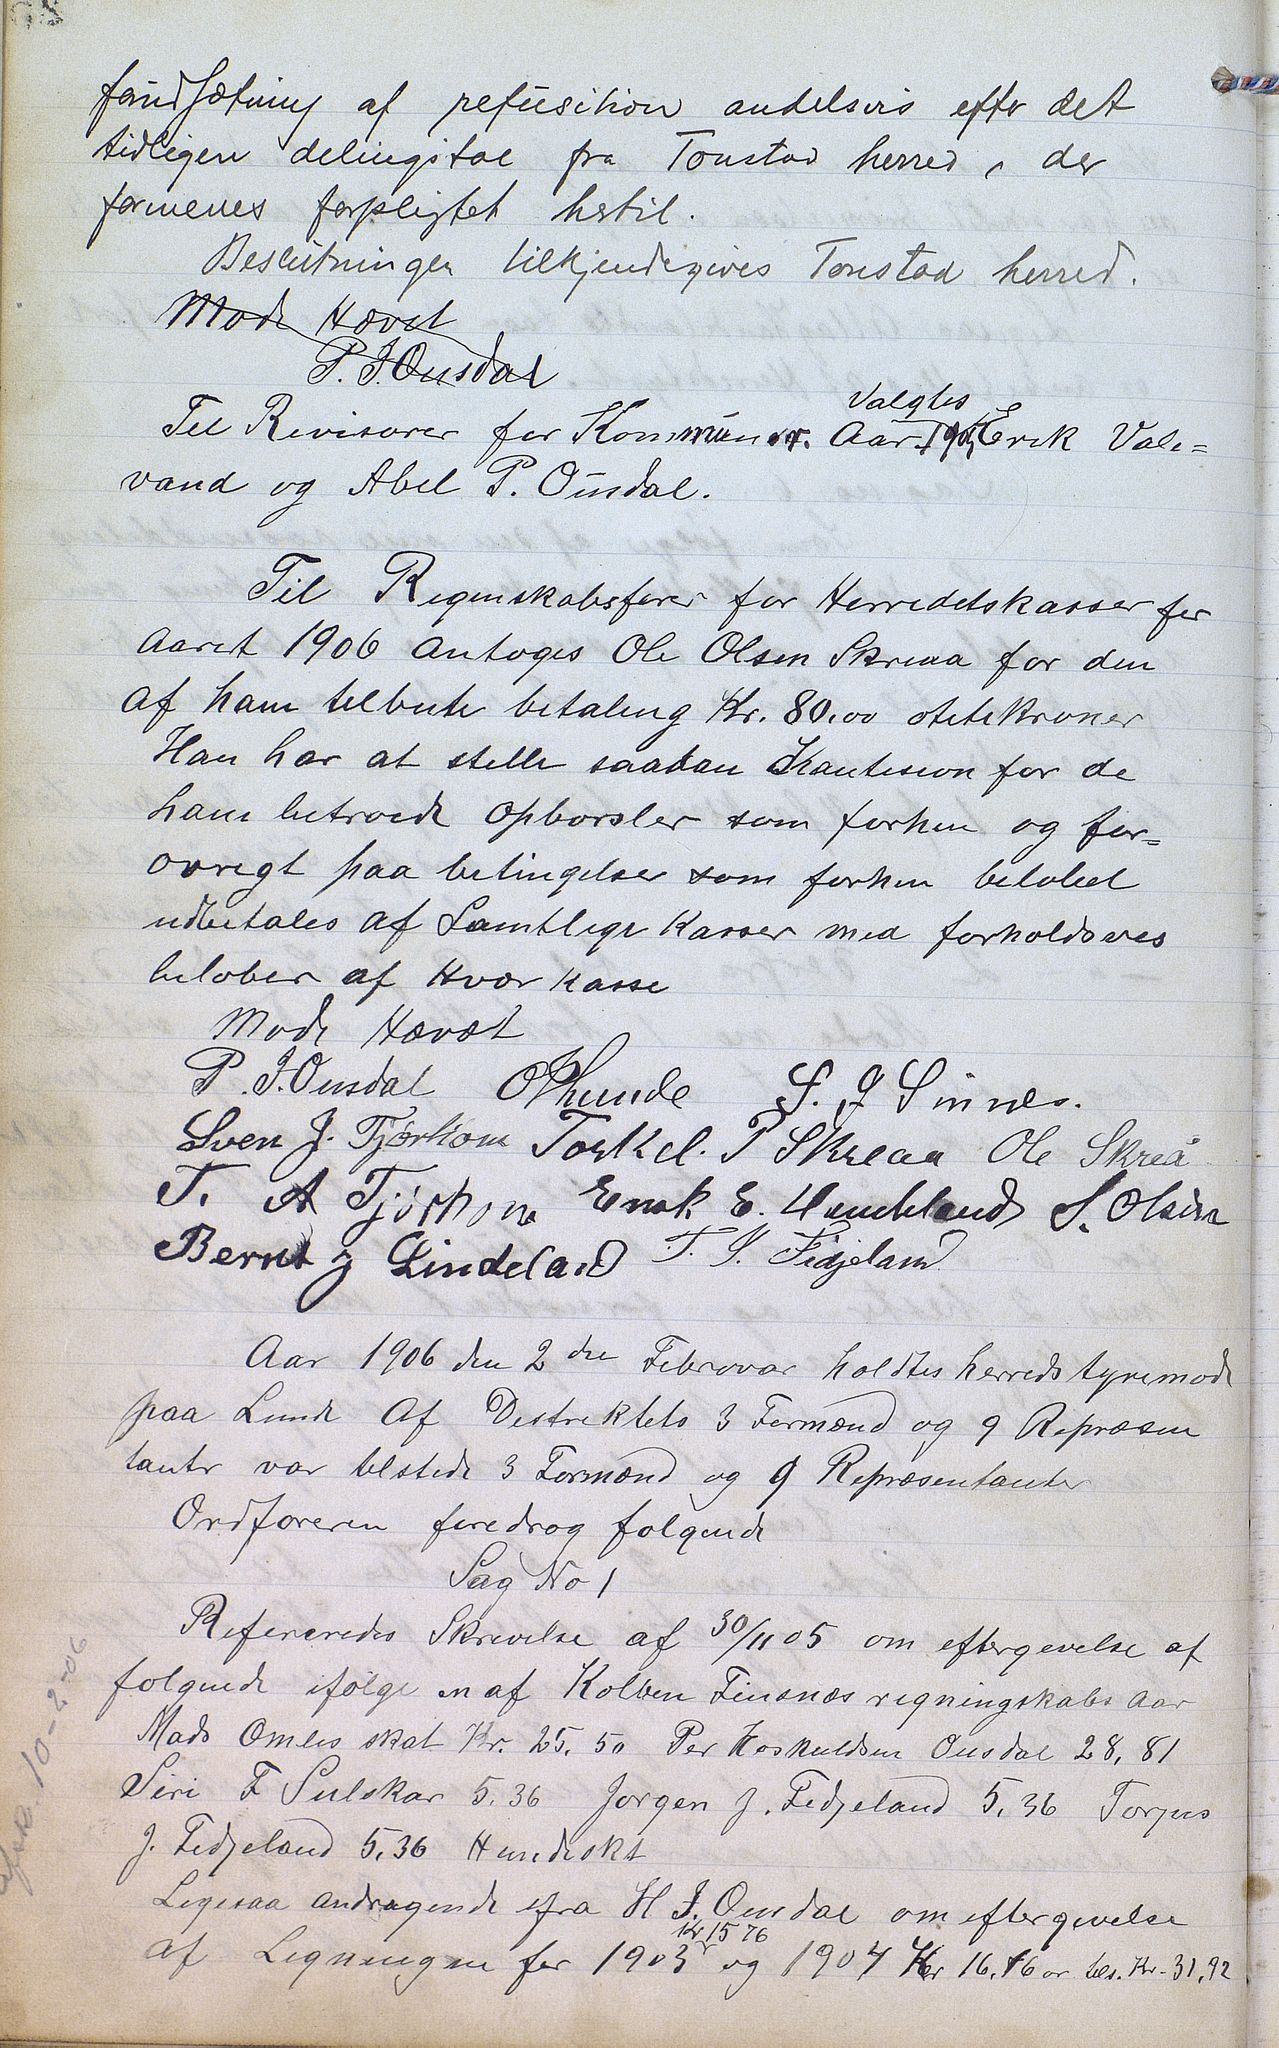 fandsætning af refusition andelsvis efter det
tidligere delingstal fra Tonstad herred, der
formenes forpligtet hertil.
Beslutningen tilkjendegives Tonstad herred.
Møde Hævet
P. J. Ousdal
Valgtes
Til Revisorer for Kommunen Aar 1905 Erik Vale=
vand og Abel P. Ousdal.
Til Regnskabsfører for Herredetskasser for
aaret 1906 antoges Ole Olsen Skreaa for den
af ham tilbute betaling Kr. 80.00 ottitekroner
Han har at stelle saadan Kautision for de
ham betroede opborsler som forhen og for=
øvregt paa betingelser som forhen beløbet
udbetales af Samtlige Kasser med forholdsves
beløber af Hvær kasse
Møde Hævet
P. J. Ousdal O P Lunde S. J Sinnes.
Sven J. Tjørhom Torkel. P Skreaa Ole Skreå
T. A Tjørhom Enok E. Haucklands S. Olsen
Bernt J Lindeland T. J. Fidjeland
Aar 1906 den 2den Febrovar holdtes herredstyremøde
paa Lunde Af Destrektets 3 Formænd og 9 Repræsen
tanter var telstede 3 Formænd og 9 Repræsentanter
Ordføreren foredrog følgende
Sag No 1
Refereredes Skrevelse af 30/11 05 om eftergevelse af
følgende ifølge af Kolben Finsnæs regningskabs aar
Mads Omlis skat Kr. 25.50 Per Hoskuldsen Ousdal 28,81
Siri F Sulskar 5.36 Jørgen J. Fedjeland 5,36 Torjus
J. Fedjeland 5,36 Hundeskt
Legesaa andragende ifra H J. Ousdal om eftergevelse
Kr 15 76
af Legningen for 1903 og 1904 Kr 16.16 ør tels. Kr. 31,92
10-2-06